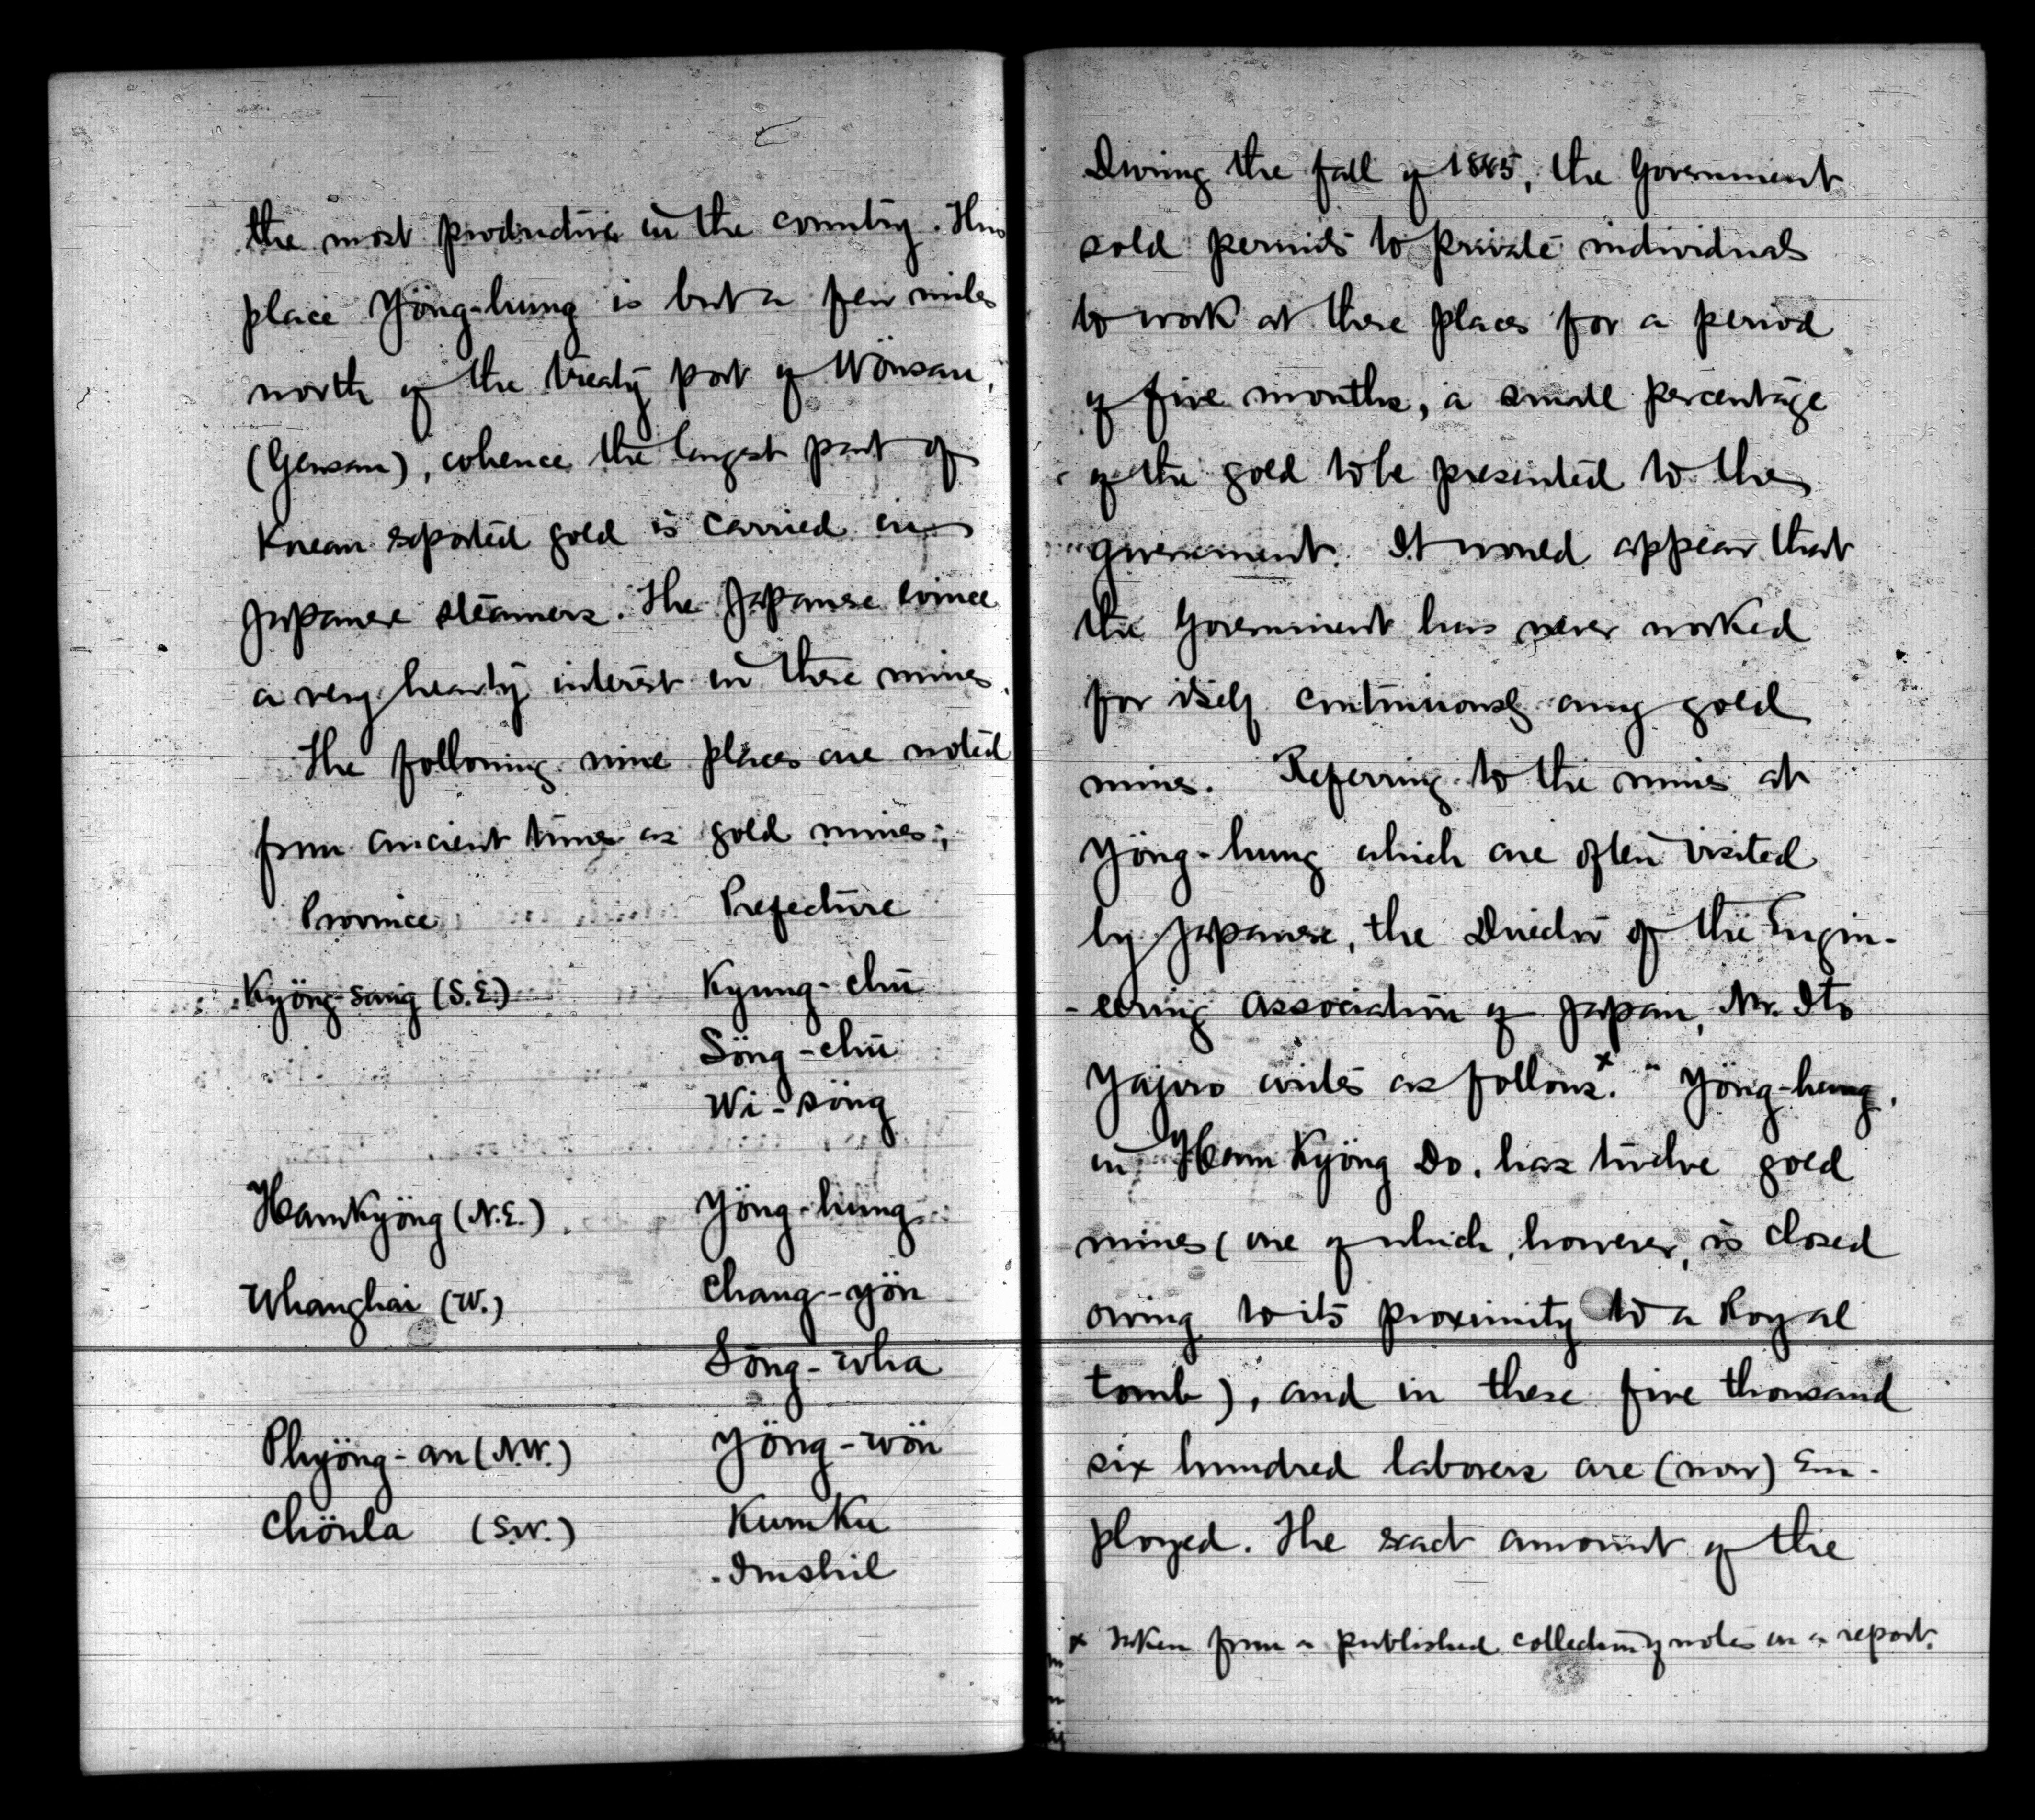 the most productive in the country. This
place Yöng-hung is but a few miles
north of the treaty port of Wönsan,
(Gensan), whence the largest part of
Korean exported gold is carried in
Japanese steamers. The Japanese evince
a very hearty interest in these mines.
The following nine places are noted
from ancient times as gold mines;
Province Prefecture
Kyöng-sang (S.E.) Kyung-chū
Söng-chū
Wi-söng
Hamkyöng (N.E.) Yöng-hung
Whanghai (W.) Chang-yön
Song-wha
Phyöng-an (N.W.) Yöng-wön
Chönla (S.W.) Kumku
Imshil
During the fall of 1885, the Government
sold permits to private individuals
to work at these places for a period
of five months, a small percentage
of the gold to be presented to the
government. It would appear that
the Government has never worked
for itself continuously any gold
mines. Referring to the mines at
Yöng-hung which are often visited
by Japanese, the Director of the Engin-
-eering Association of Japan, Mr. Ito
Yajiro writes as follows.x " Yöng-hung,
in Ham Kyöng Do, has twelve gold
mines (one of which, however, is closed
owing to its proximity to a Royal
tomb), and in these five thousand
six hundred laborers are (now) em-
ployed. The exact amount of the
x Taken from a published collection of notes on a report.